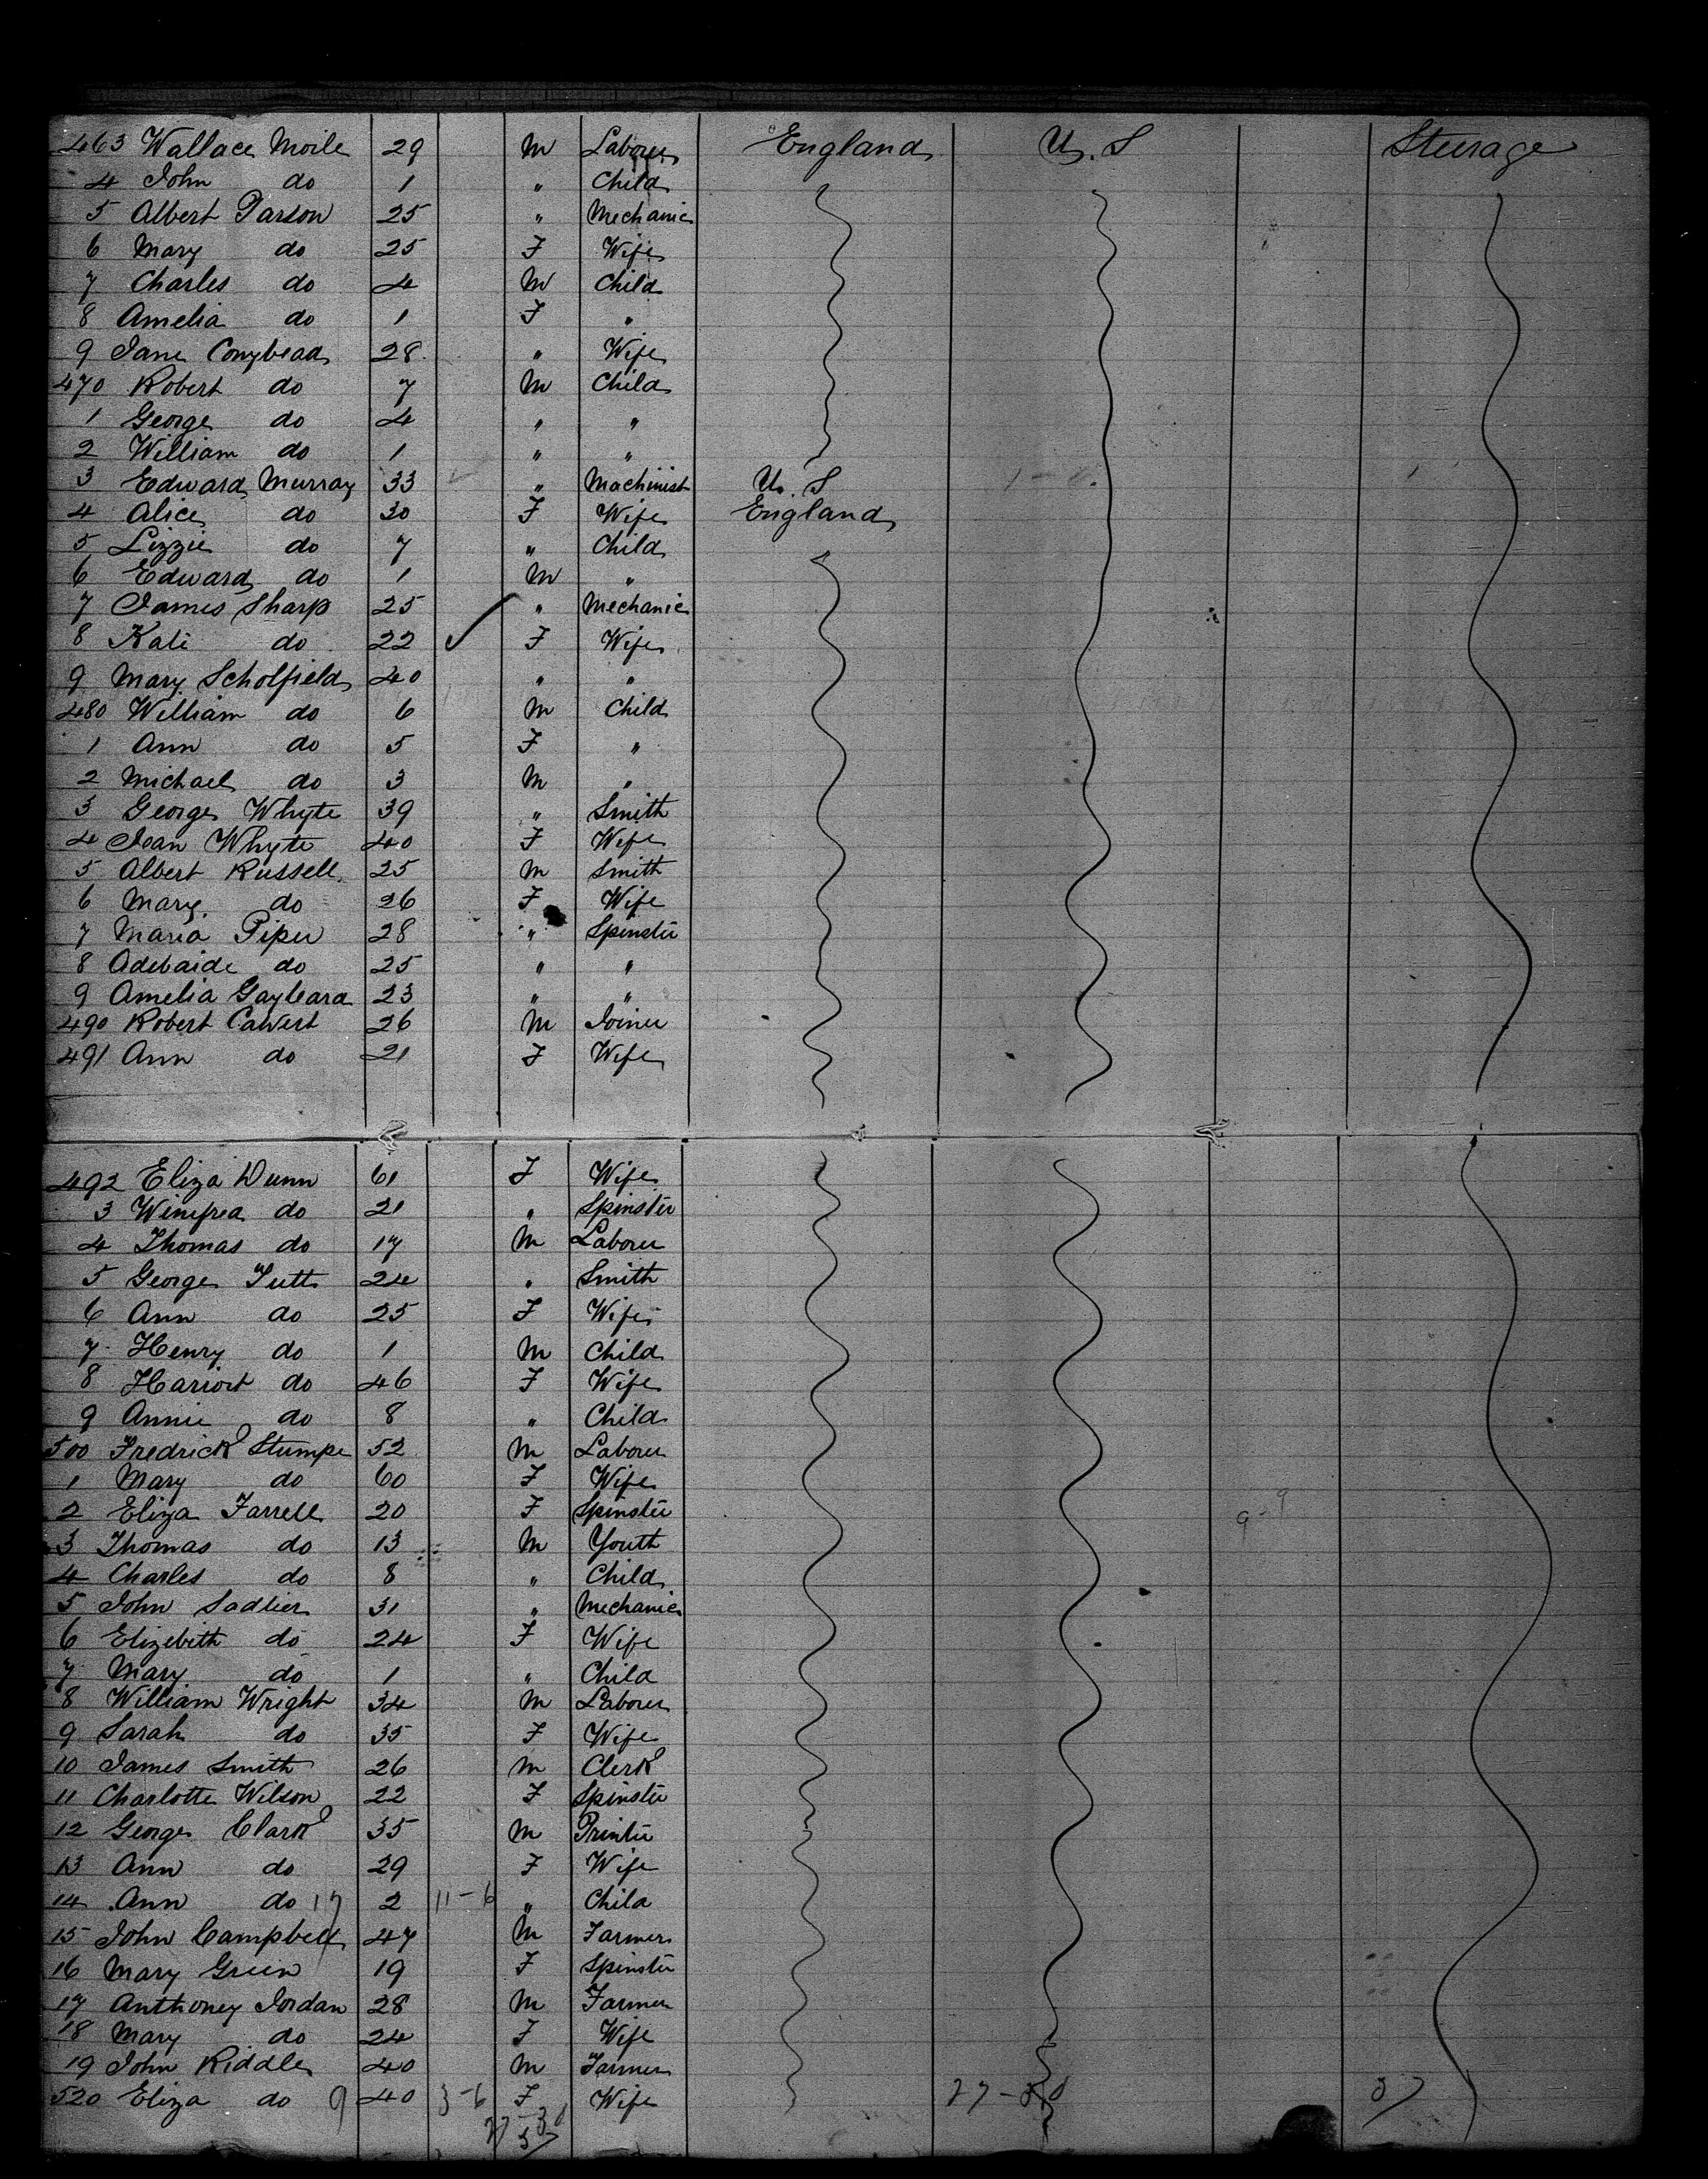 463 Wallace Moile 29 M Laborer England U.S Steerage
4 John do 1 " Child
5 Albert Parson 25 " Mechanic
6 Mary do 25 F Wife
7 Charles do 4 M Child
8 Amelia do 1 F "
9 Jane Conybead 28 " Wife
470 Robert do 7 M Child
1 George do 4 " "
2 William do 1 " "
3 Edward Murray 33 " Machinist U.S
4 Alice do 30 F Wife England
5 Lizzie do 7 " Child
6 Edward do 1 M "
7 James Sharp 25 " Mechanic
8 Kate do 22 F Wife
9 Mary Scholfield 40 " "
480 William do 6 M Child
1 Ann do 5 F "
2 Michael do 3 M "
3 George Whyte 39 " Smith
4 Jean Whyte 40 F Wife
5 Albert Russell 25 M Smith
6 Mary do 26 F Wife
7 Maria Piper 28 " Spinster
8 Adelaide do 25 " "
9 Amelia Gaybeard 23 " "
490 Robert Calvert 26 M Joiner
491 Ann do 21 F Wife
492 Eliza Dunn 61 F Wife
3 Winifred do 21 " Spinster
4 Thomas do 17 M Laborer
5 George Tutt 24 " Smith
6 Ann do 25 F Wife
7 Henry do 1 M Child
8 Harriort do 46 F Wife
9 Annie do 8 " Child
500 Fredrick Stumpe 52 M Laborer
1 Mary do 60 F Wife
2 Eliza Farrell 20 F Spinster
3 Thomas do 13 M Youth
4 Charles do 8 " Child
5 John Sadlier 31 " Mechanic
6 Elizebith do 24 F Wife
7 Mary do 1 " Child
8 William Wright 34 M Laborer
9 Sarah do 35 F Wife
10 James Smith 26 M Clerk
11 Charlotte Wilson 22 F Spinster
12 George Clark 35 M Printer
13 Ann do 29 F Wife
14 Ann do 17 2 11-6 " Child
15 John Campbell 47 M Farmer
16 Mary Green 19 F Spinster
17 Anthoney Jordan 28 M Farmer
18 Mary do 24 F Wife
19 John Riddle 40 M Farmer
520 Eliza do 9 40 3-6 F Wife